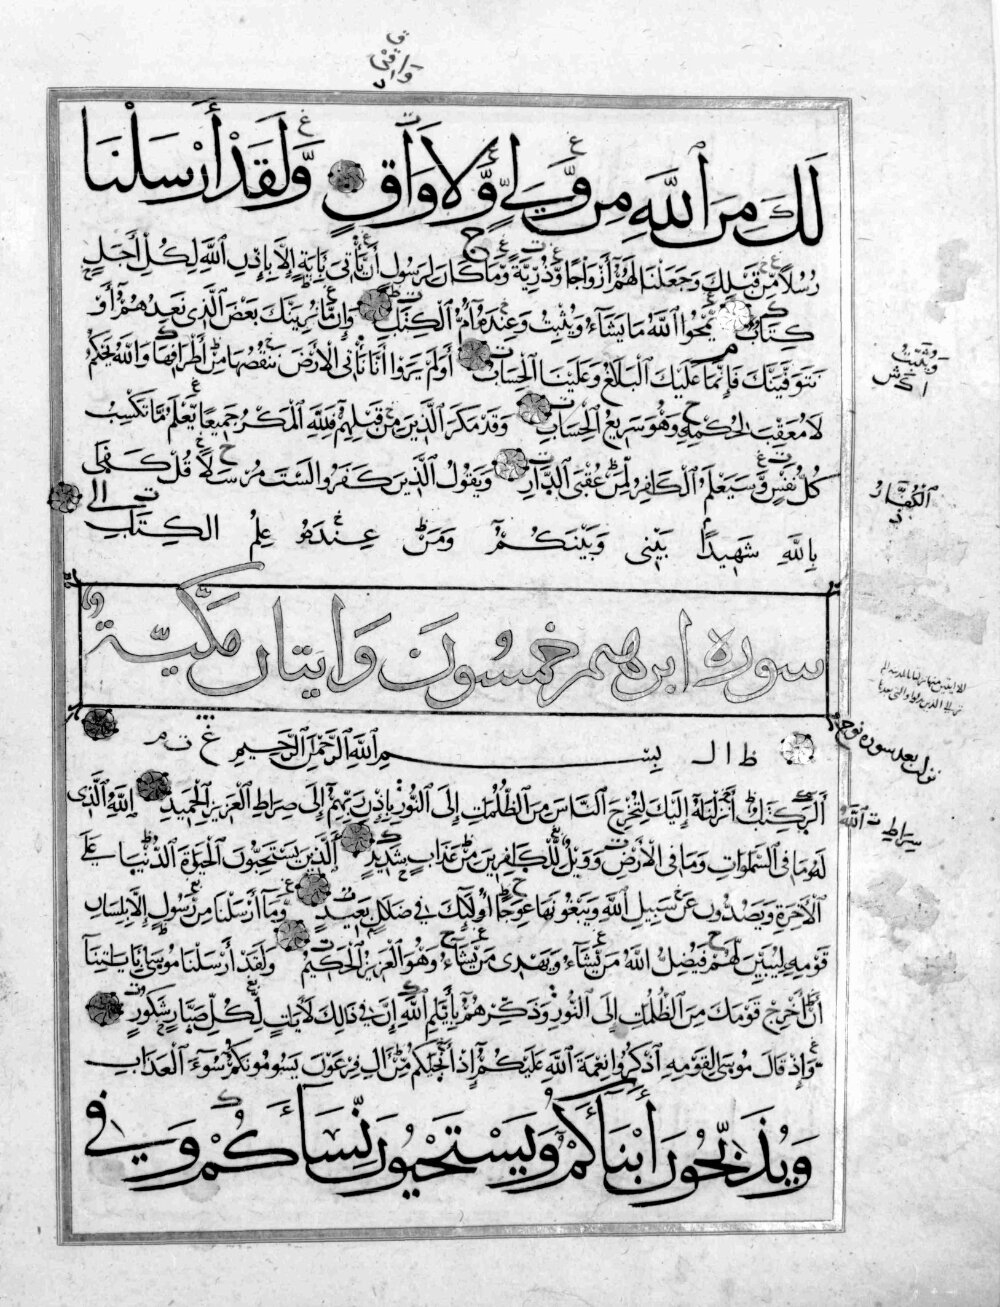 واقى
لك من الله من ولي ولا واق ولقد أرسلنا
رسلا من قبلك وجعلنا لهم أزواجا وذرية وما كان لرسول أن يأتي بآية إلا بإذن الله لكل أجل
كتاب يمحوا الله ما يشاء ويثبت وعنده أم الكتب وإن ما نرينك بعض الذي نعدهم أو
نتوفينك فإنما عليك البلغ وعلينا الحساب أولم يروا أنا نأتي الأرض ننقصها من أطرافها والله يحكم
لا معقب لحكمه وهو سريع الحساب وقد مكر الذين من قبلهم فلله المكر جميعا يعلم ما تكسب
كل نفس وسيعلم الكافر لمن عقبى الدار ويقول الذين كفروا لست مرسلا قل كفى
بالله شهيدا بيني وبينكم ومن عنده علم الكتب
ويثبت
الكفار
سورة ابرهيم خمسون وايتان مكية
نزلت بعد سورة نوح
بسم الله الرحمن الرحيم
الر كتب أنزلنه إليك لتخرج الناس من الظلمت إلى النور بإذن ربهم إلى صراط العزيز الحميد الله الذي
سراط الله
له ما في السموات وما في الأرض وويل للكافرين من عذاب شديد الذين يستحبون الحيوة الدنيا على
الآخرة ويصدون عن سبيل الله ويبغونها عوجا أولئك في ضلال بعيد وما أرسلنا من رسول إلا بلسان
قومه ليبين لهم فيضل الله من يشاء ويهدي من يشاء وهو العزيز الحكيم ولقد أرسلنا موسى بآياتنا
أن أخرج قومك من الظلمات إلى النور وذكرهم بأيام الله إن في ذالك لآيات لكل صبار شكور
وإذ قال موسى لقومه اذكروا نعمة الله عليكم إذ أنجيكم من ال فرعون يسومونكم سوء العذاب
ويذبحون أبناءكم ويستحيون نساءكم وفي